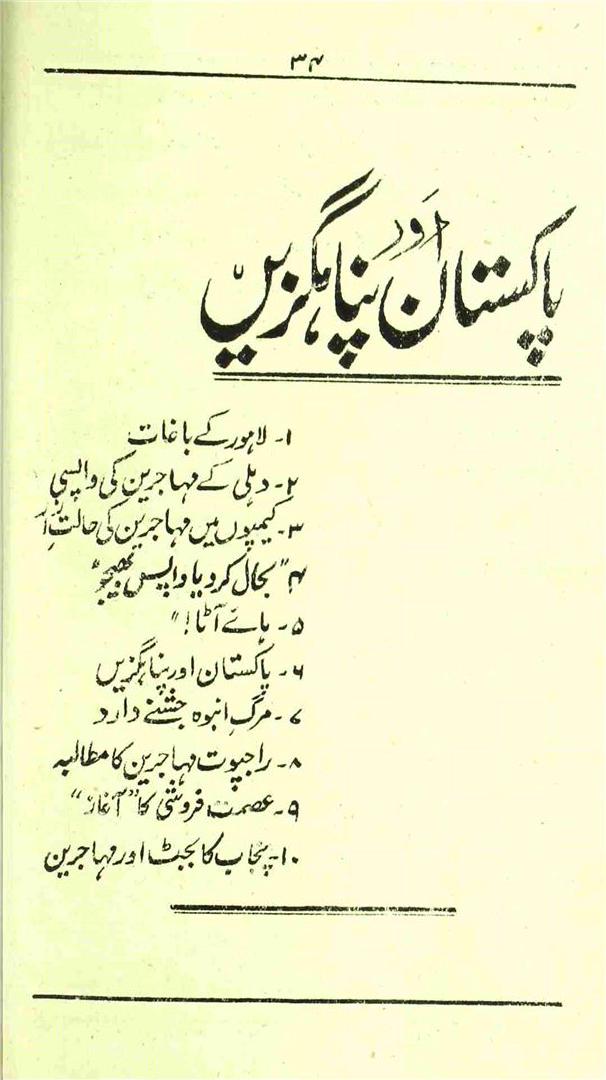 ۳۴
پاکستان اَور پناہ گزیں
۱۔ لاہور کے باغات
۲۔ دہلی کے مہاجرین کی واپسی
۳۔ کیمپوں میں مہاجرین کی حالتِ زار
۴۔ "بحال کر دیا واپس بھیجو"
۵۔ ہائے آٹا!"
۶۔ پاکستان اور پناہ گزیں
۷۔ مرگِ انبوہ جشنے دارد
۸۔ راجپوت مہاجرین کا مطالبہ
۹۔ عصمت فروشی کا "آغاز"
۱۰۔ پنجاب کا بجٹ اور مہاجرین